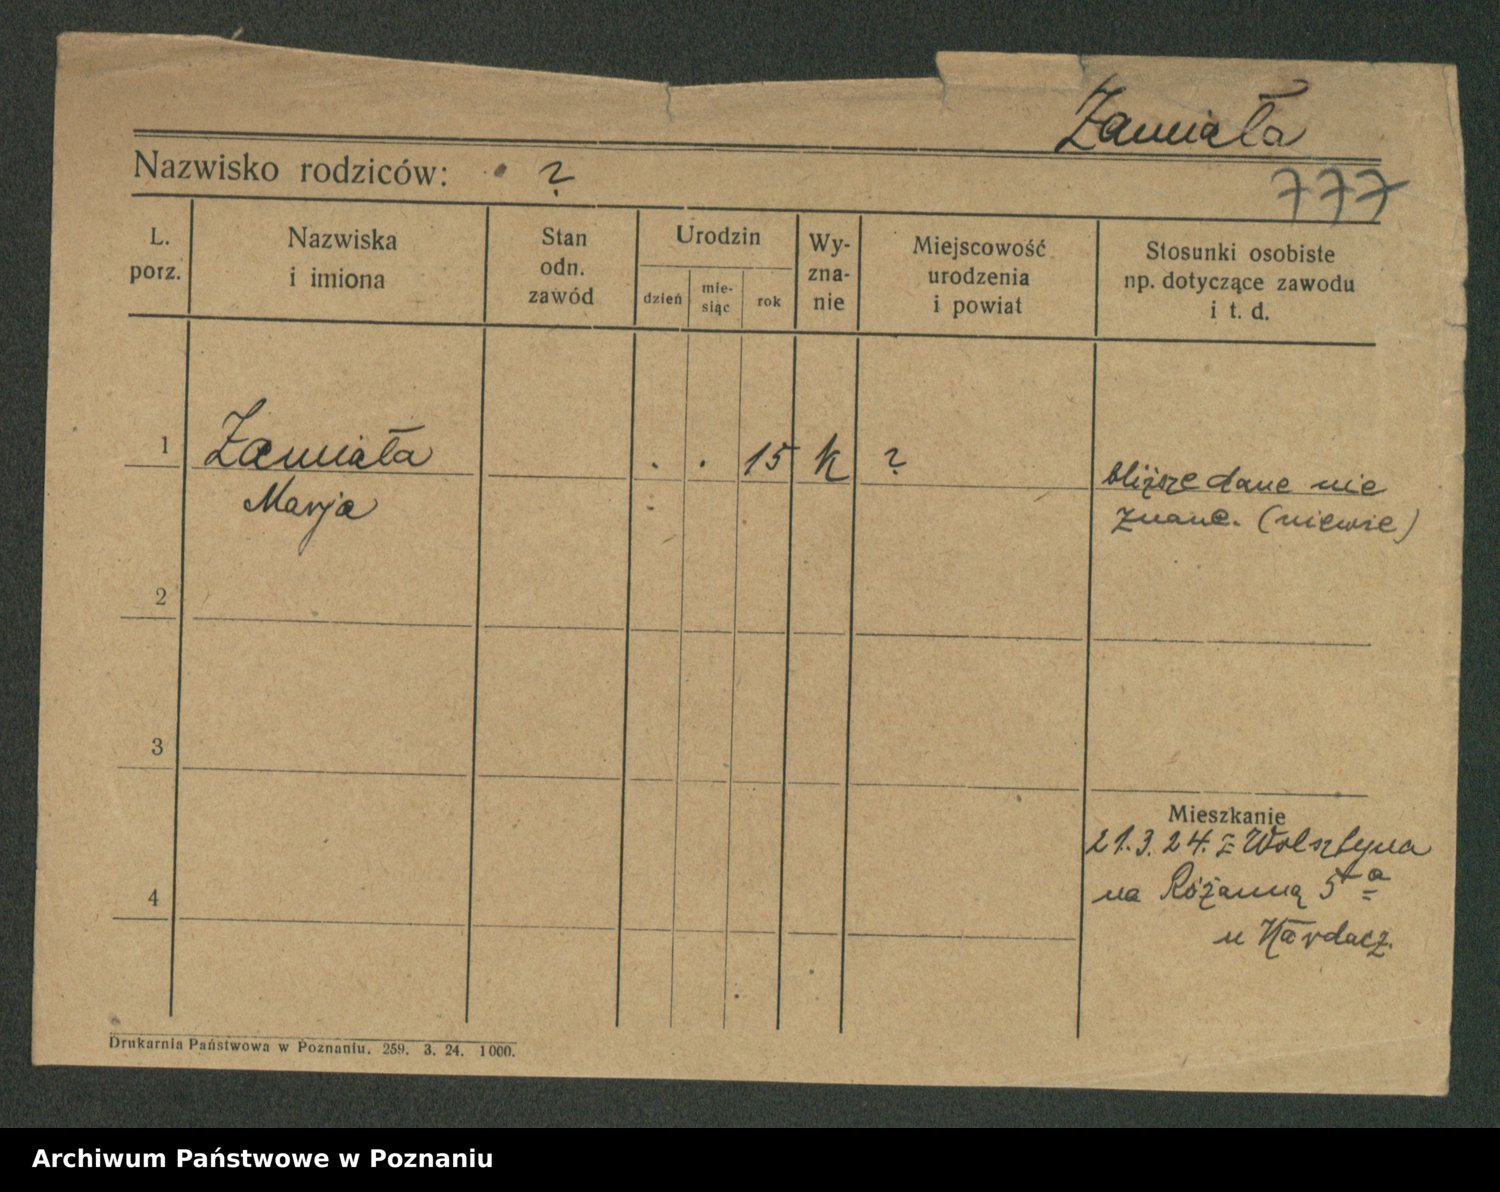 Zamiała
Nazwisko rodziców: ?
777
L. porz.
Nazwiska i imiona
Stan odn. zawód
Urodzin
dzień
mie-siąc
rok
Wy-zna-nie
Miejscowość urodzenia i powiat
Stosunki osobiste np. dotyczące zawodu i t. d.
1
Zamiała
Marja
. . 15
k
?
bliższe dane nie
znane. (niewie)
2
3
Mieszkanie
21.3.24. z Wolsztyna
4
na Różanną 5a
u Kardacz.
Drukarnia Państwowa w Poznaniu. 259. 3. 24. 1000.
Archiwum Państwowe w Poznaniu